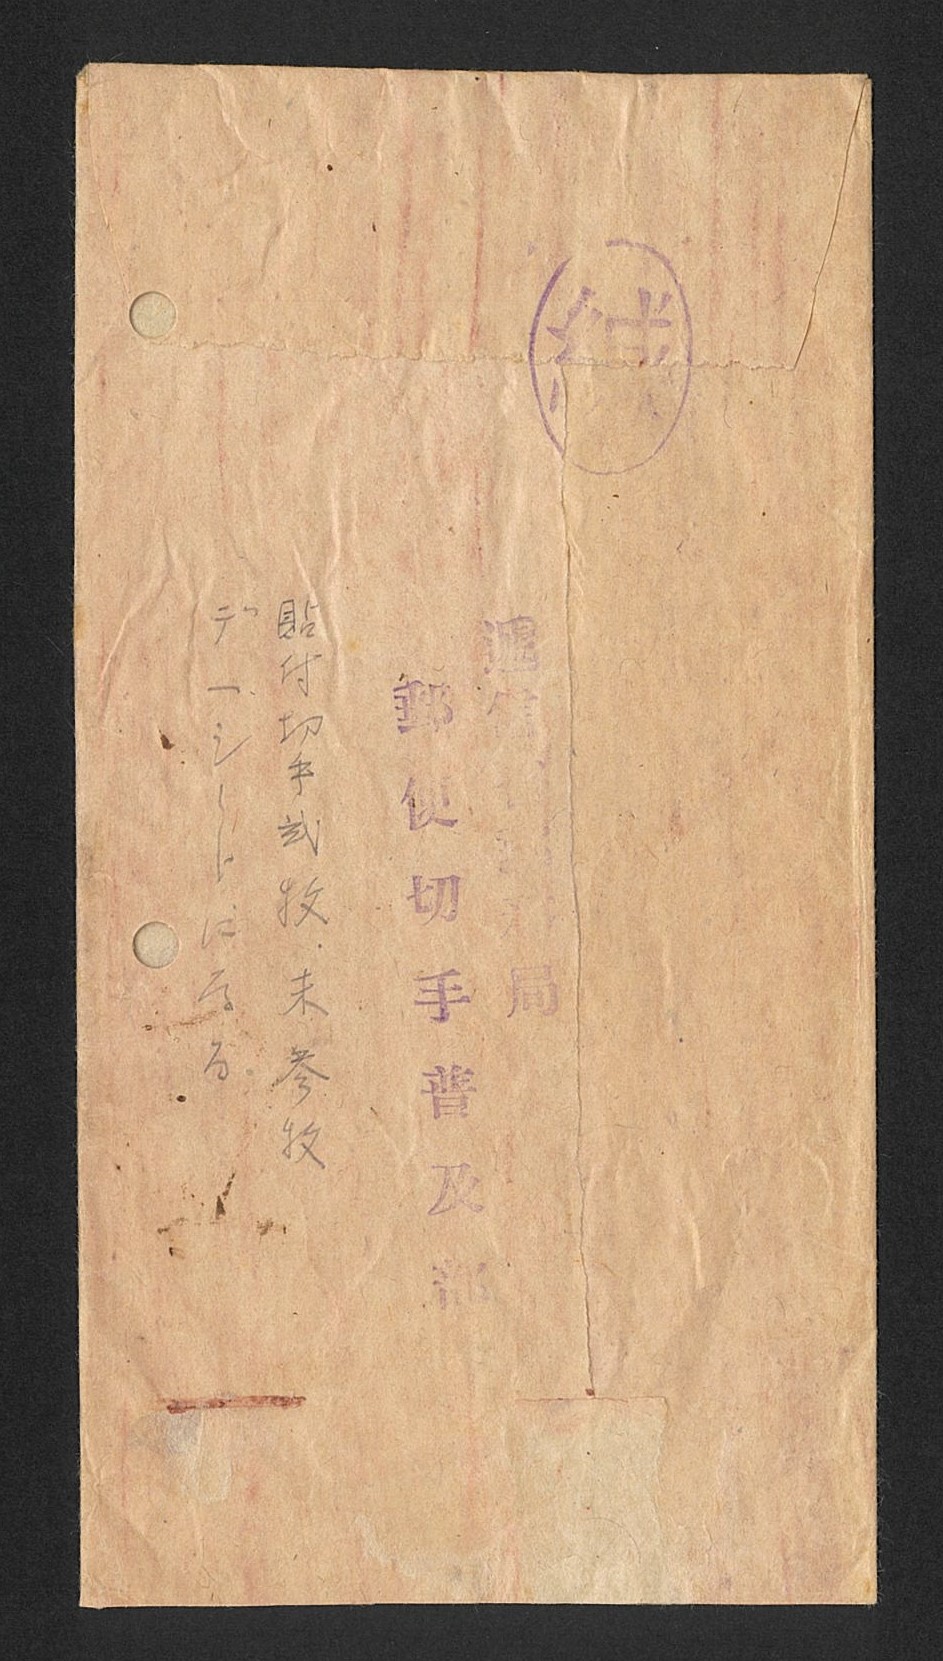 緘
遞信 局
郵便切手普及部
貼付切手弐枚．未参枚
デ一シートになる